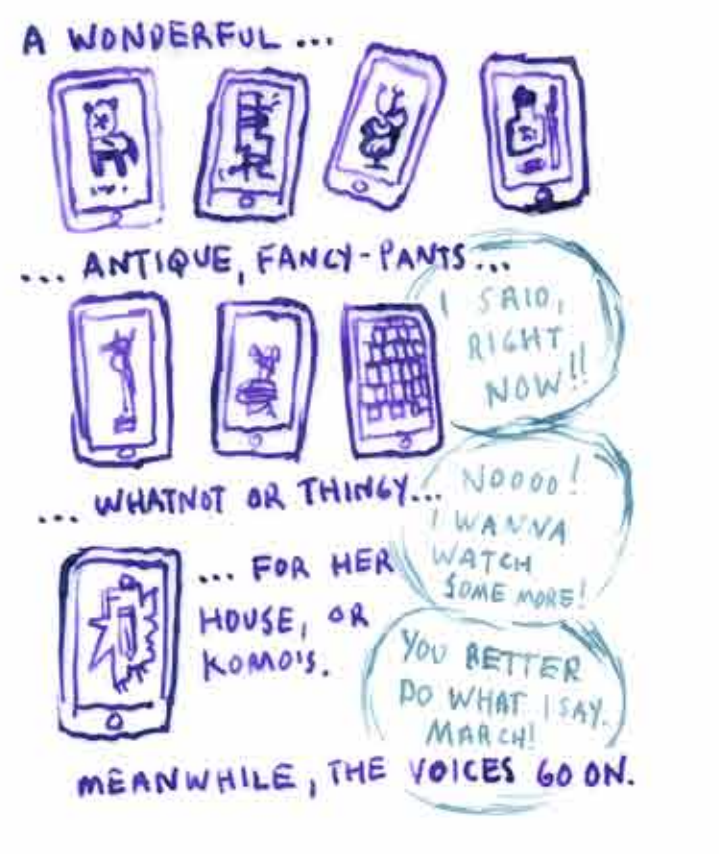 A WONDERFUL ...
... ANTIQUE, FANCY-PANTS...
I SAID,
RIGHT
NOW!!
... WHATNOT OR THINGY...
NOOOO!
I WANNA
WATCH
SOME MORE!
... FOR HER
HOUSE, OR
KOMO'S.
YOU BETTER
DO WHAT I SAY.
MARCH!
MEANWHILE, THE VOICES GO ON.